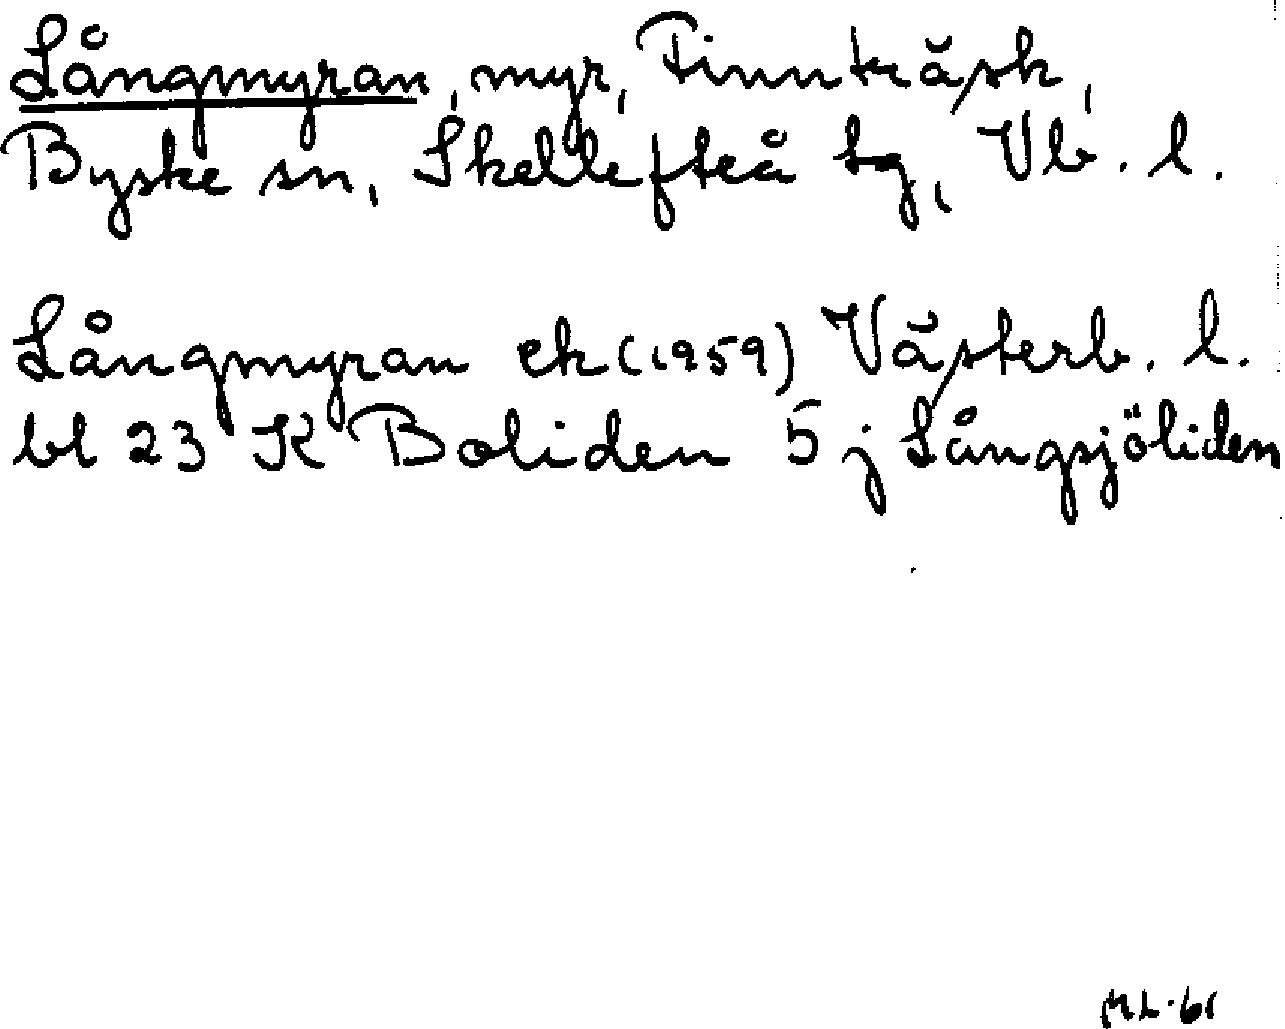 Långmyran, myr, Finnträsk,
Byske sn, Skellefteå tg, Vb. l.
Långmyran ek (1959) Västerb. l.
bl 23 K Boliden 5 j Långsjöliden
ML-61